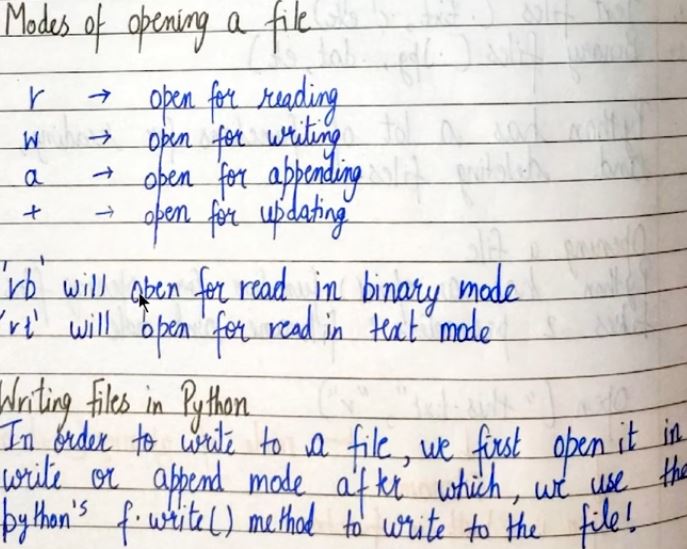 Modes of opening a file
r → open for reading
w → open for writing
a → open for appending
+ → open for updating
'rb' will open for read in binary mode
'rt' will open for read in text mode
Writing files in Python
In order to write to a file, we first open it in
write or append mode after which, we use the
python's f.write() method to write to the file!